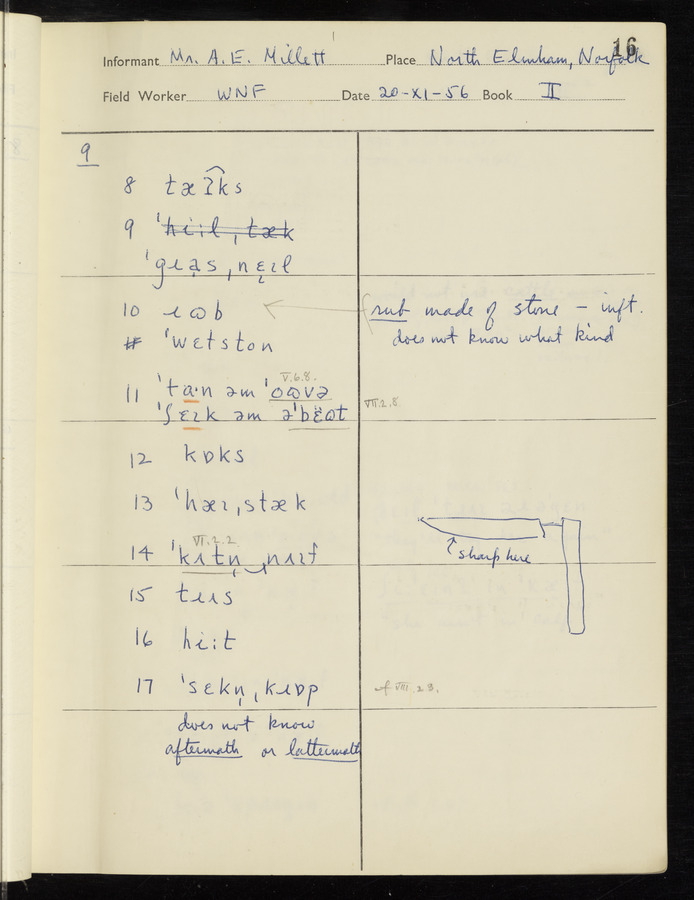 16
Informant Mr. A. E. Millett Place North Elmham, Norfolk
Field Worker WNF Date 20-XI-56 Book II
9
8 tæʔ͡ks
9 ˈhiːl ˌtæk
ˈgɹas ˌnɛɪl
10 ɹɷb
ˈwɛtstɒn
rub made of stone – inft.
does not know what kind
V.6.8.
11 ˈtaˑn əm ˈoɷvə
VII.2.8
ˈʃɛɪk əm əˈbɛɷt
12 kɒks
13 ˈhæɪˌstæk
VII.2.2
14 ˈkɪtn̩ ˌnaɪf
sharp here
15 tɪɪs
16 hiːt
17 ˈsɛkn̩ ˌkɹɒp
cf VIII.2.3.
does not know
aftermath or lattermath